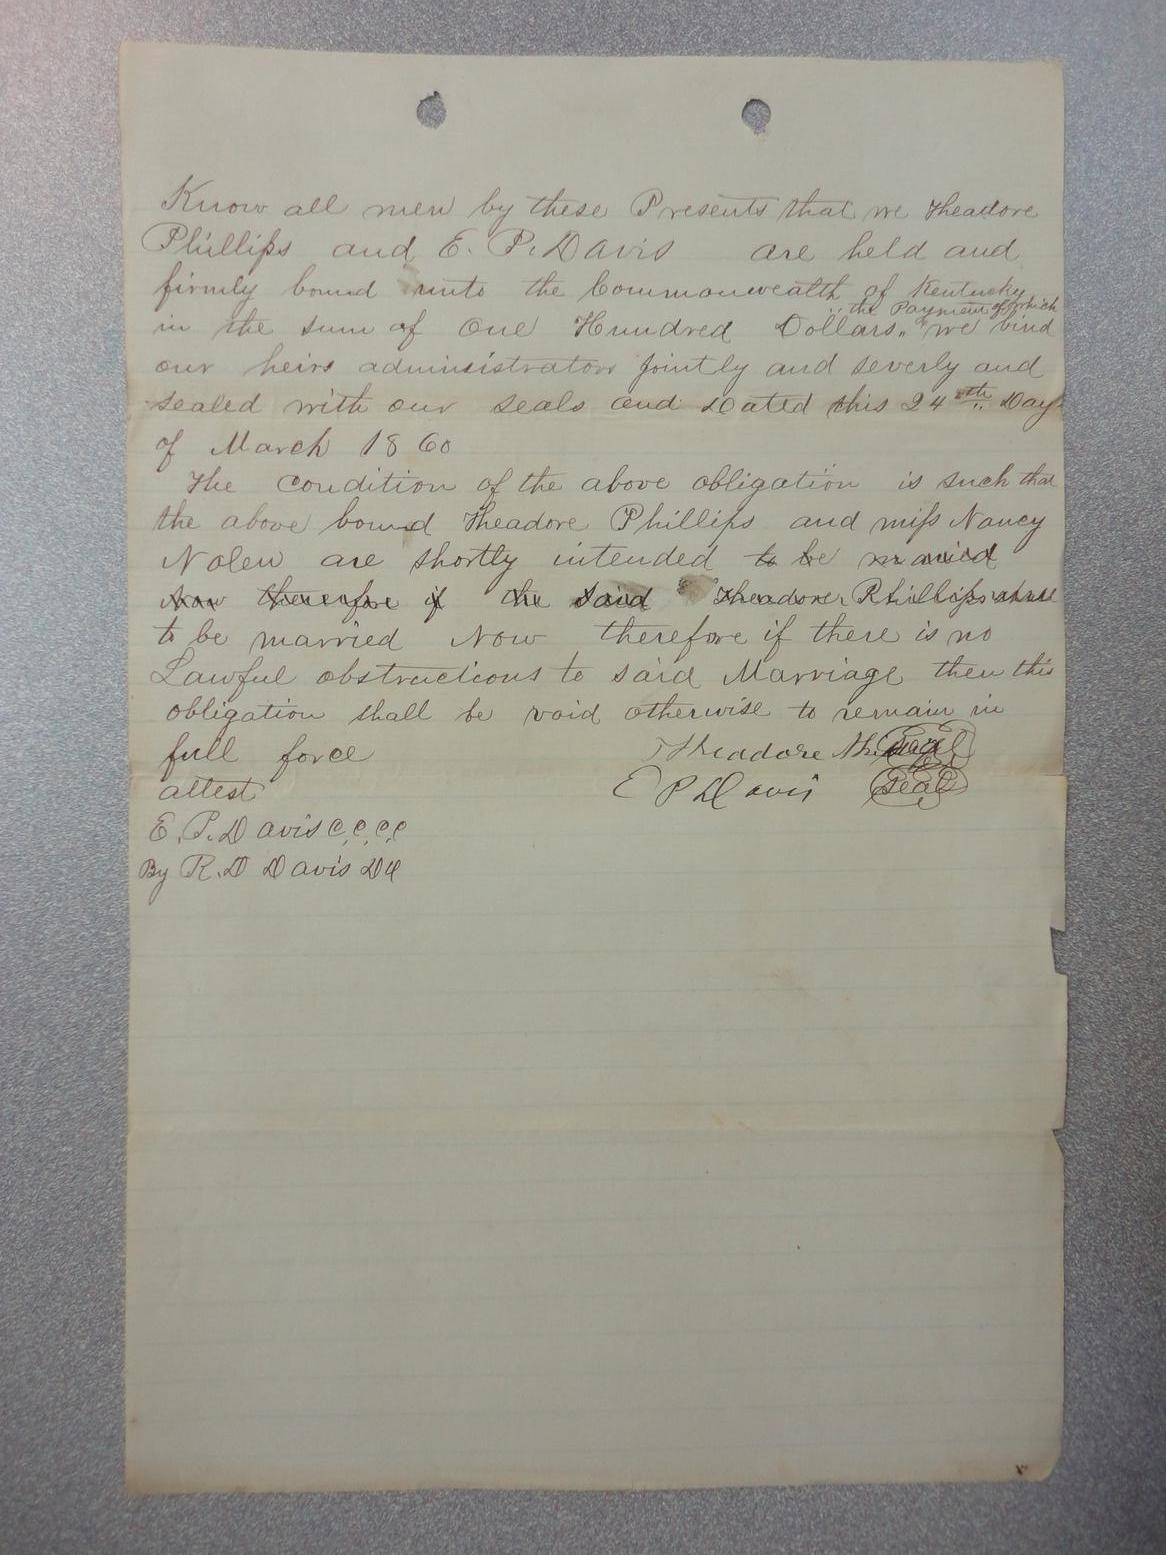 Know all men by these Presents that we Theadore
Phillips and E. P. Davis are held and
firmly bound unto the Commonwealth of Kentucky
in the sum of One Hundred Dollars,, the Payment of which we bind
our heirs administrators jointly and severly and
sealed with our seals and Dated this 24th Day
of March 1860
The condition of the above obligation is such that
the above bound Theadore Phillips and miss Nancy
Nolen are shortly intended to be married
Now therefore if the said Theadore Phillips
to be married Now therefore if there is no
Lawful obstructions to said Marriage then this
obligation shall be void otherwise to remain in
full force
Theadore Seal
attest
E P Davis Seal
E. P. Davis C.C.C.C
By R. D Davis DC